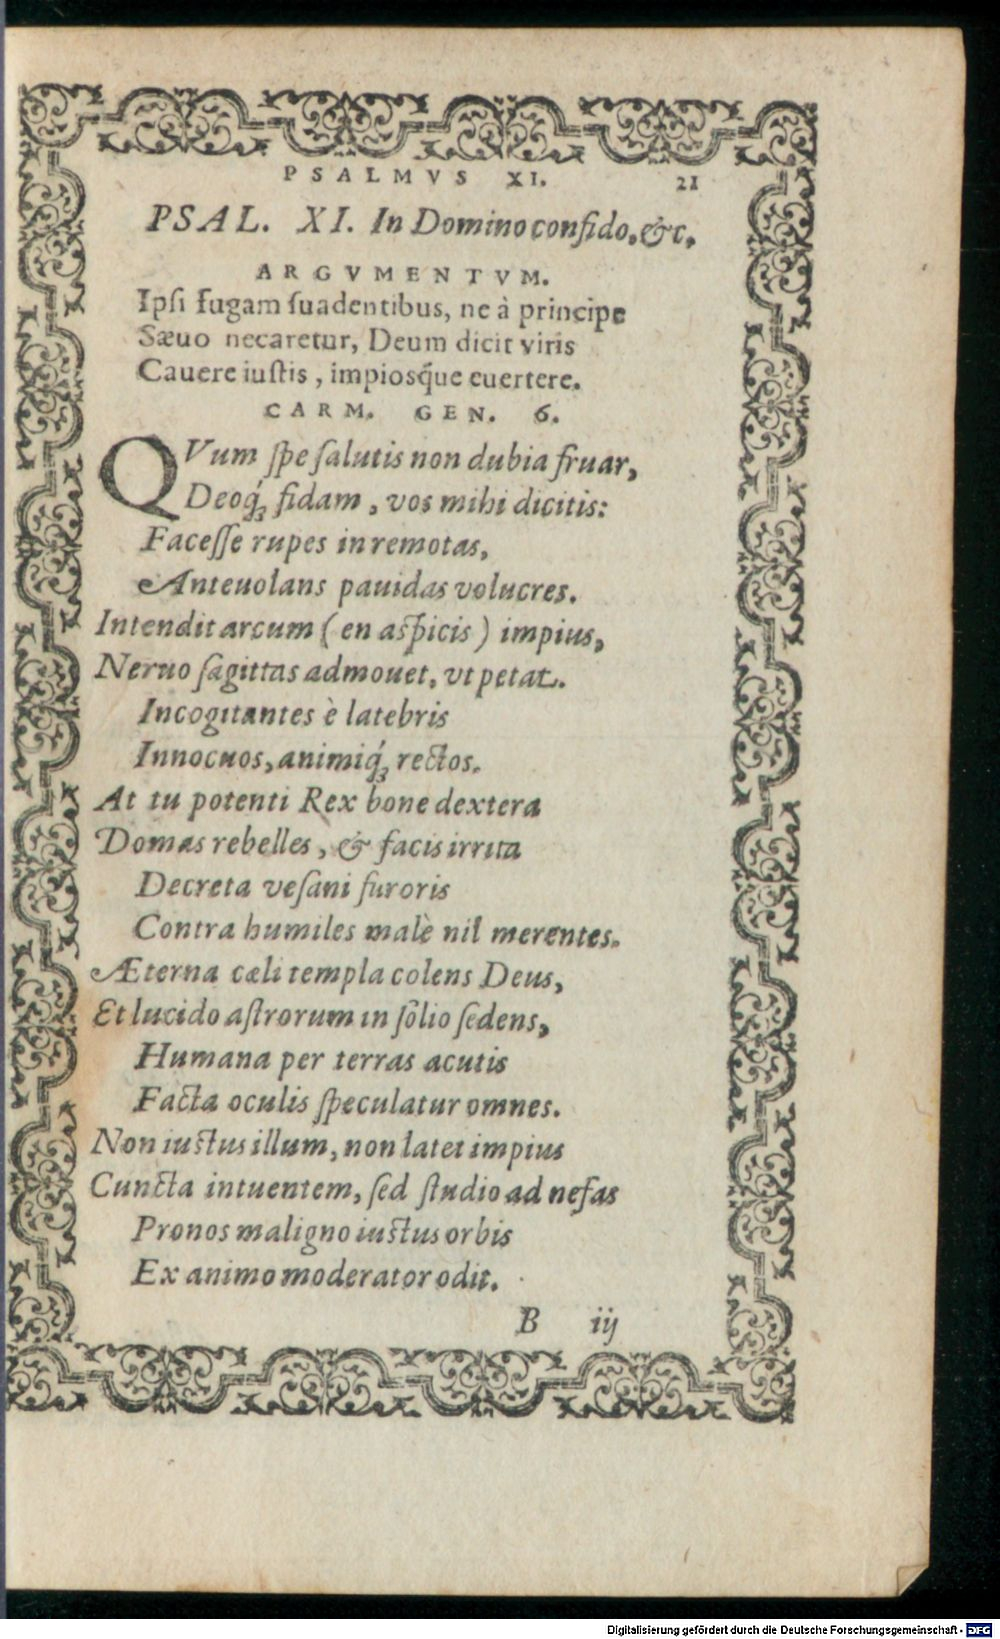 PSALMVS XI. 21
PSAL. XI. In Domino confido, &c.
ARGVMENTVM.
Ipſi fugam ſuadentibus, ne à principe
Sæuo necaretur, Deum dicit viris
Cauere iuſtis, impiosq́ue euertere.
CARM. GEN. 6.
QVum ſpe ſalutis non dubia fruar,
Deoq́ꝫ fidam, vos mihi dicitis:
Faceſſe rupes in remotas,
Anteuolans pauidas volucres.
Intendit arcum (en aſpicis) impius,
Neruo ſagittas admouet, vt petat
Incogitantes è latebris
Innocuos, animiq́ꝫ rectos.
At tu potenti Rex bone dextera
Domas rebelles, & facis irrita
Decreta veſani furoris
Contra humiles malè nil merentes.
Æterna cæli templa colens Deus,
Et lucido aſtrorum in ſolio ſedens,
Humana per terras acutis
Facta oculis ſpeculatur omnes.
Non iuſtus illum, non latet impius
Cuncta intuentem, ſed ſtudio ad nefas
Pronos maligno iuſtus orbis
Ex animo moderator odit.
B iij
Digitalisierung gefördert durch die Deutsche Forschungsgemeinschaft - DFG